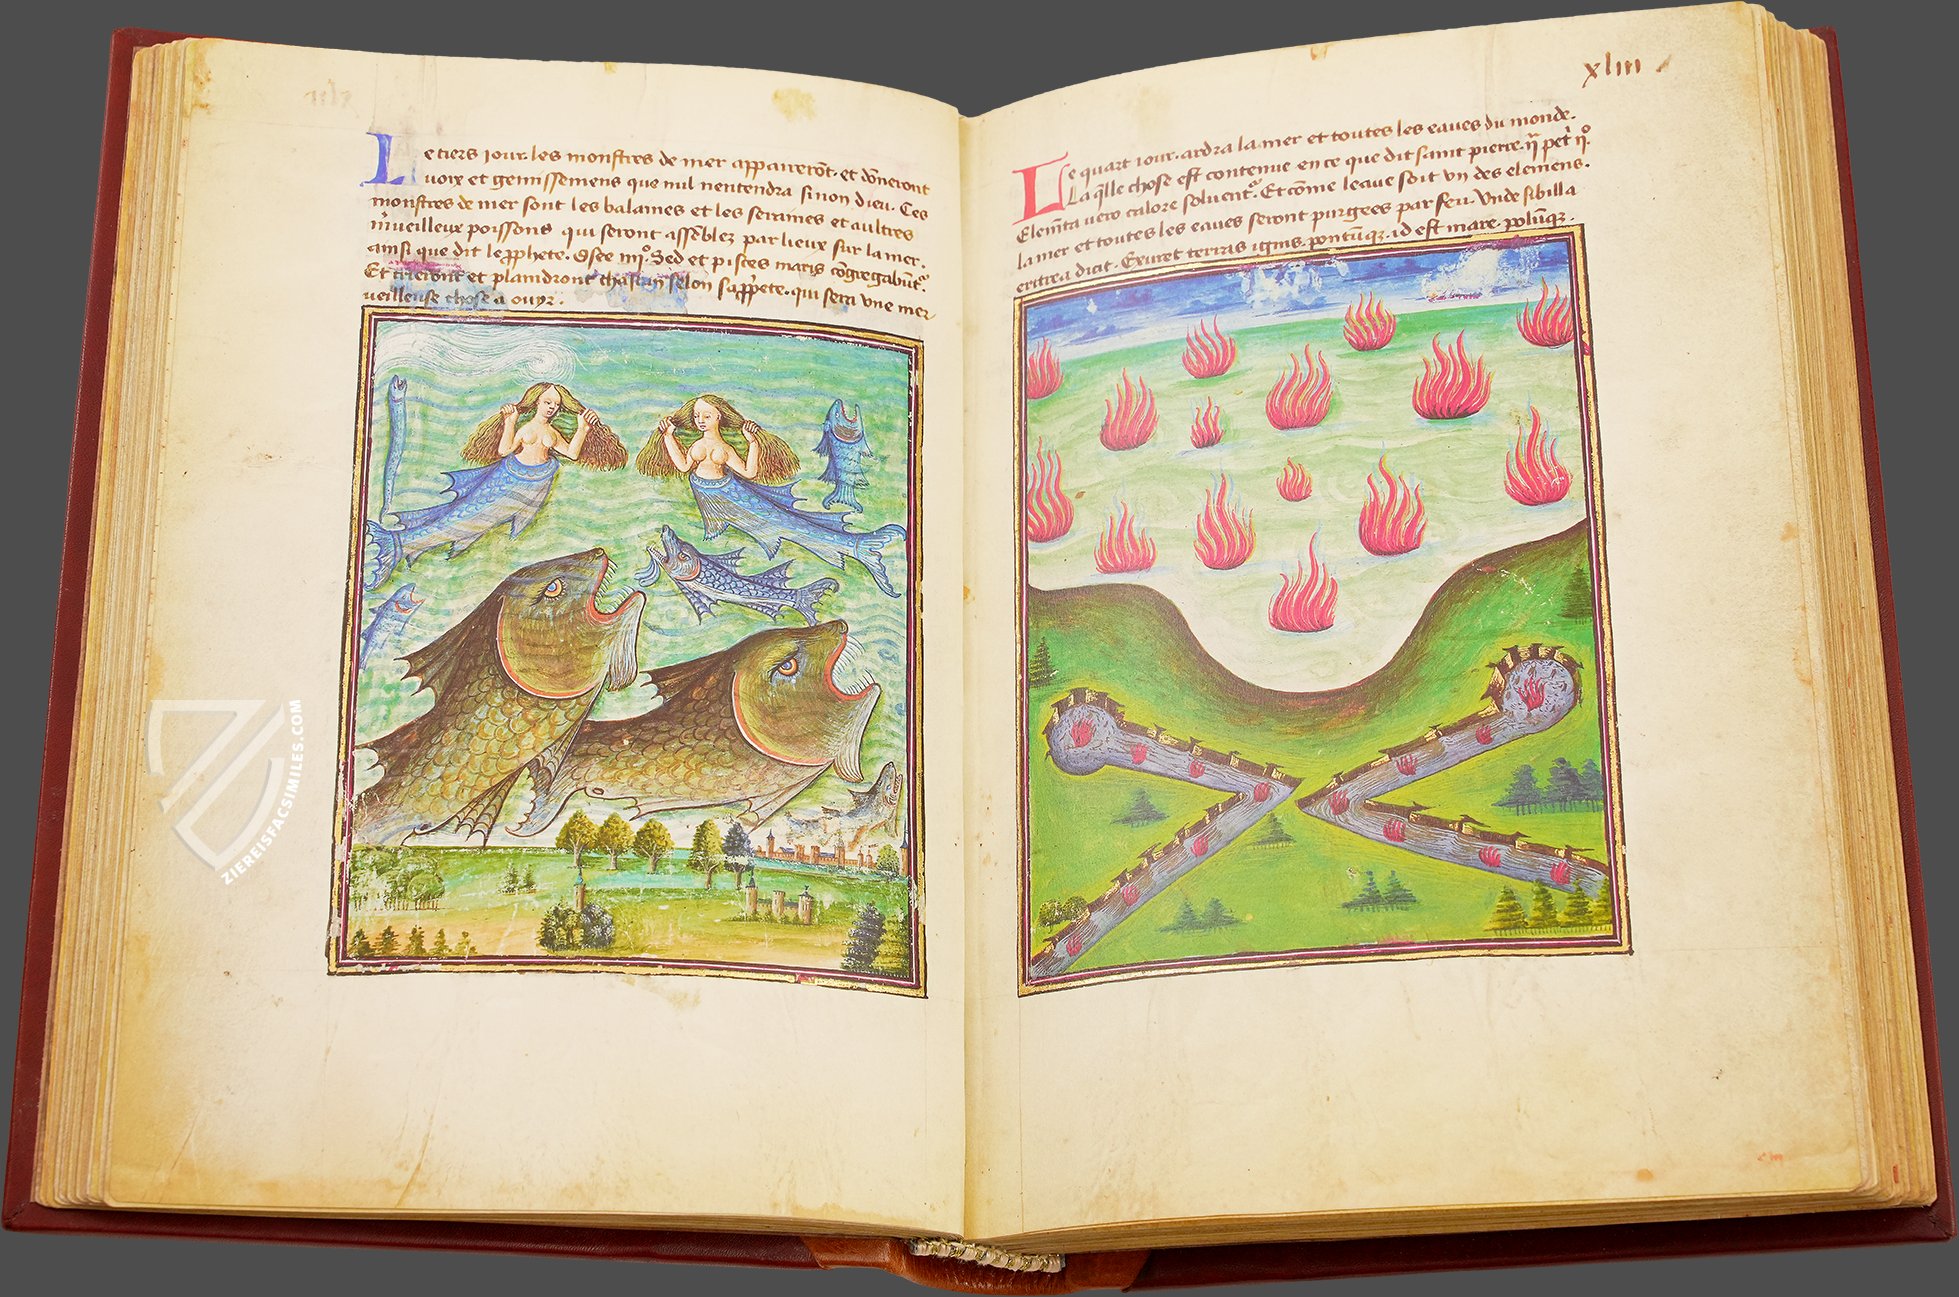 Le tiers iour. les monstres de mer appairerōt. et dōneront
voix et gemissemens que nul nentendra sinon dieu. Ces
monstres de mer sont les balaines et les seraines et aultres
m̄veilleux poissons qui seront assēblez par lieux sur la mer.
ainsi que dit le ꝓphete. Osee iiij°. Sed et pisces maris cōgregabūt᷑.
Et crieront et plaindront chascun selon sa
veilleuse chose a ouyr. qui sera vne mer
xliii
Le quart iour. ardra la mer et toutes les eaues du monde.
La q̄lle chose est contenue en ce que dit saint pierre. ij pet ij°.
Elemēta vero calore soluent᷑. Et cōme leaue soit vn des elemens.
la mer et toutes les eaues seront purgees par feu. vnde sibilla
eritrea dicit. Exuret terras ignis. pontūqꝫ. id est mare. polūqꝫ.
ZIEREISFACSIMILES.COM